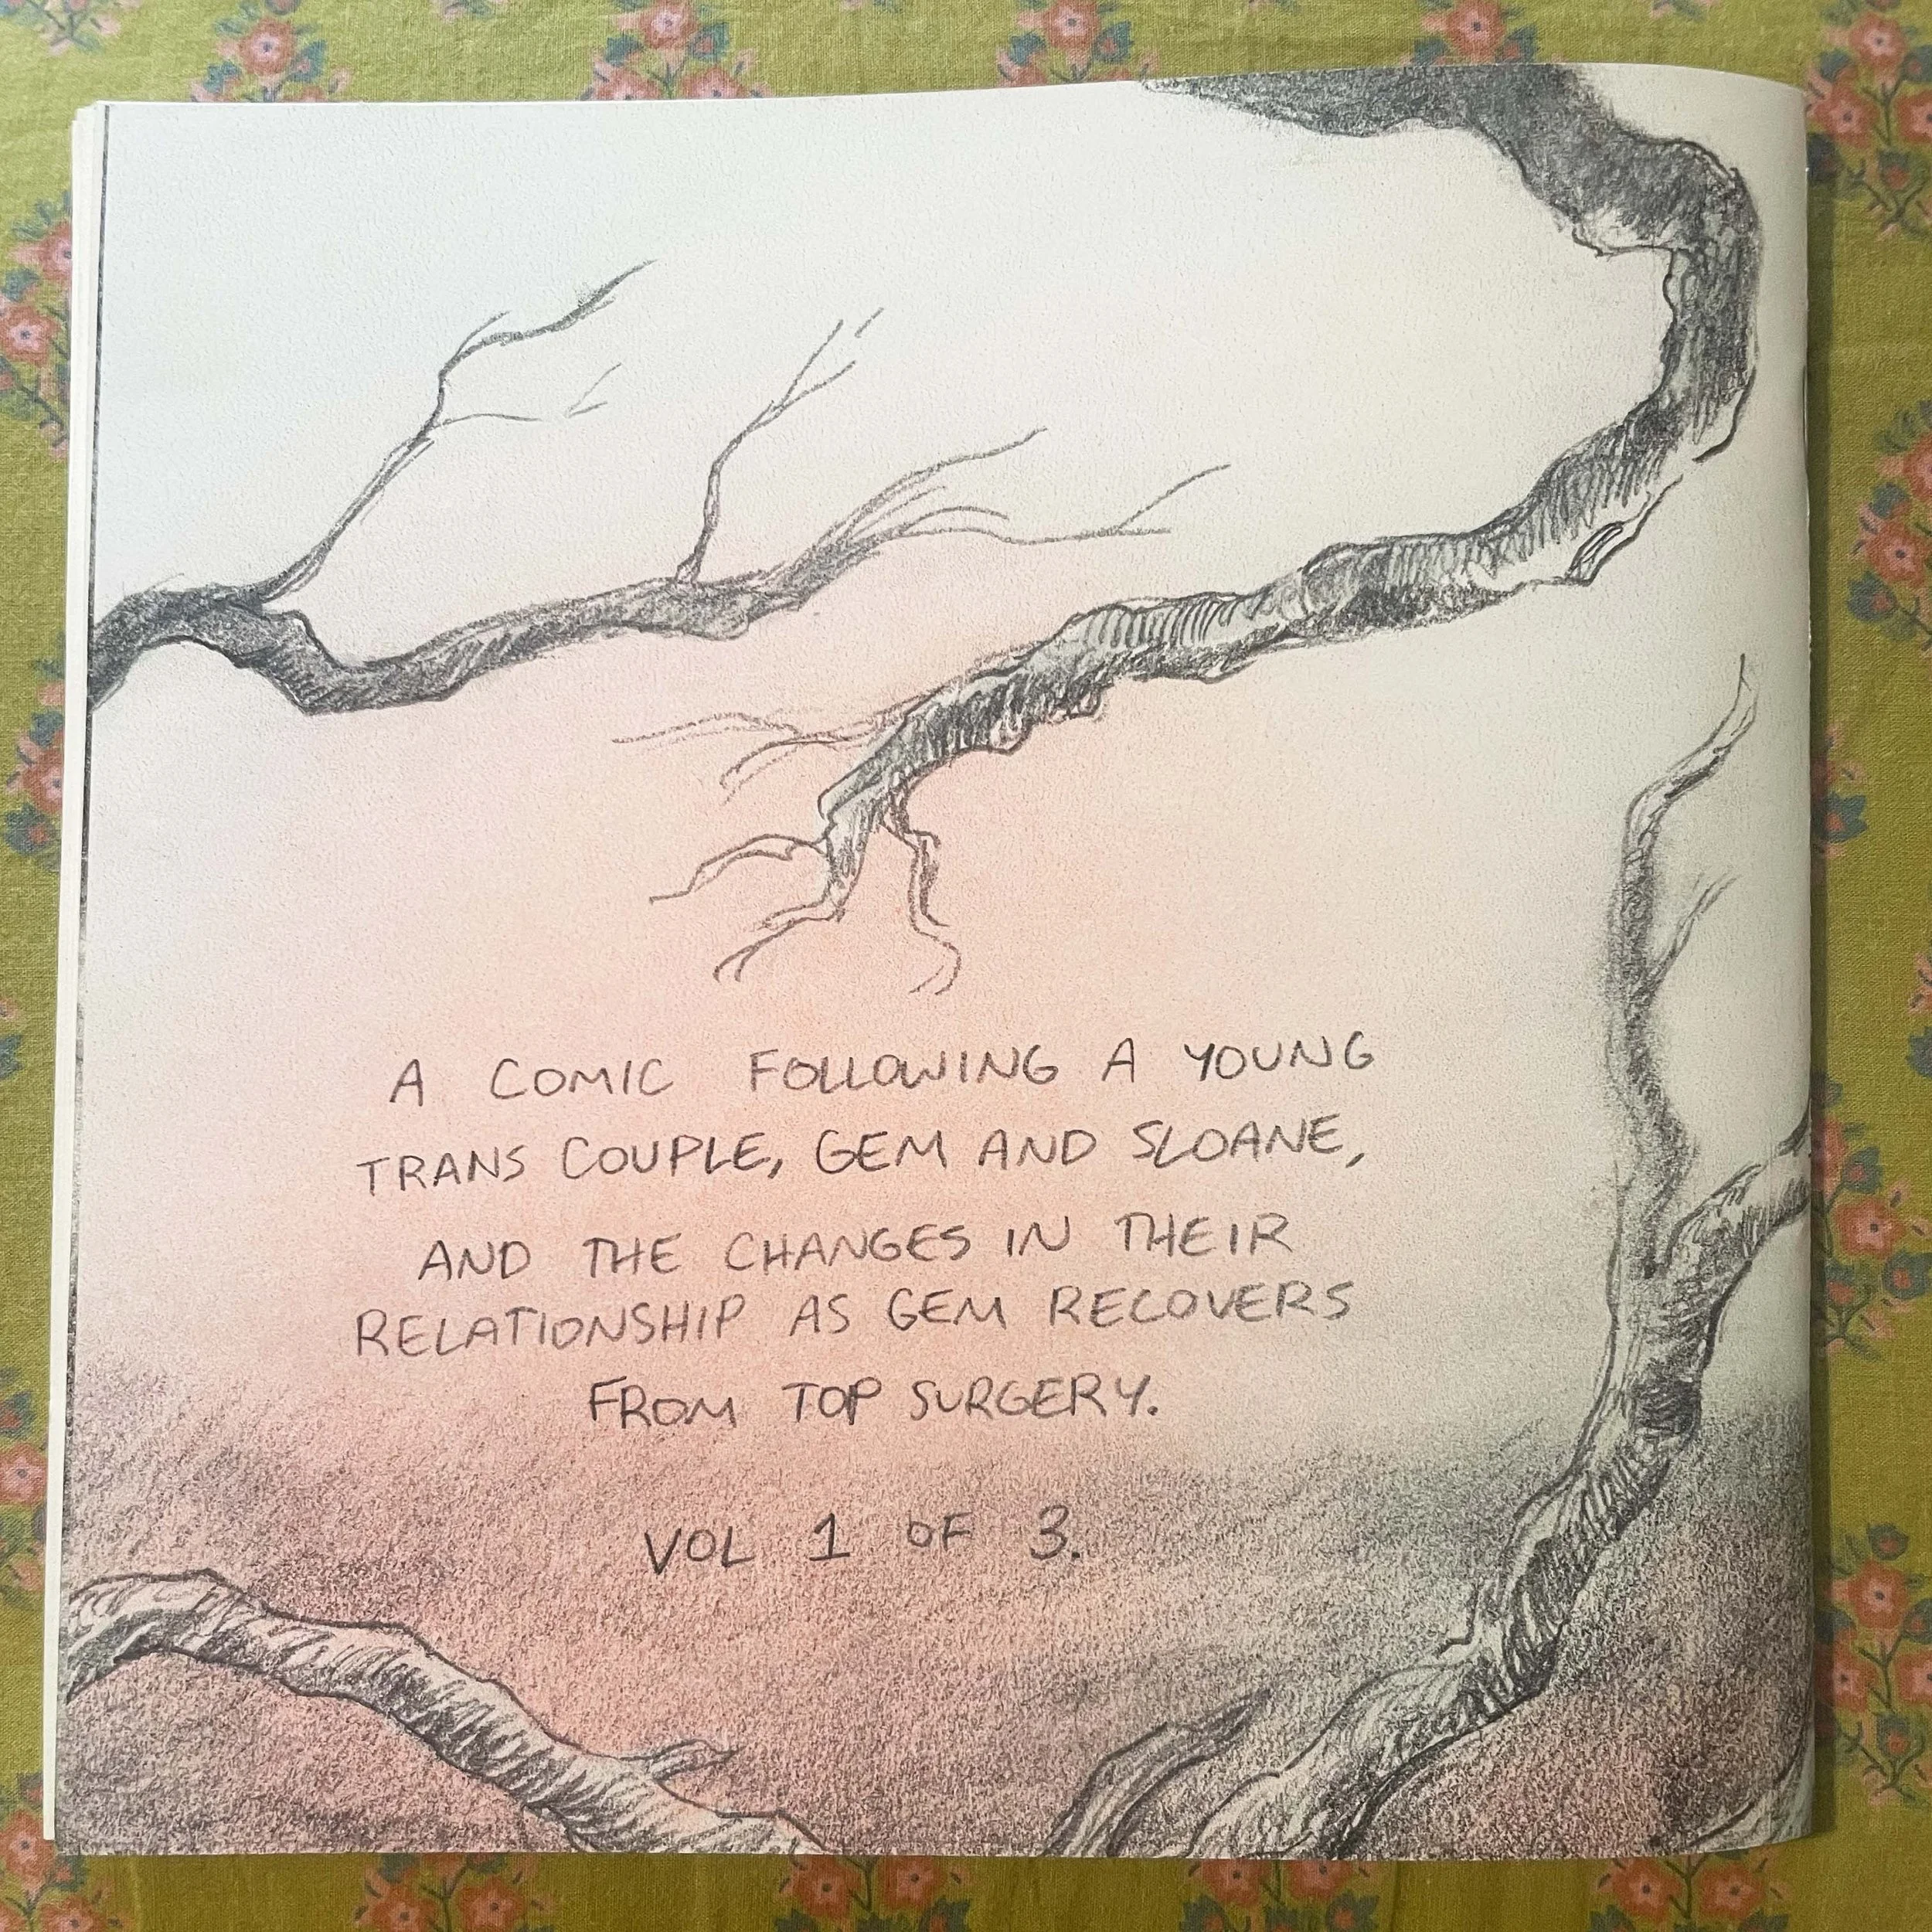 A COMIC FOLLOWING A YOUNG
TRANS COUPLE, GEM AND SLOANE,
AND THE CHANGES IN THEIR
RELATIONSHIP AS GEM RECOVERS
FROM TOP SURGERY.
VOL 1 OF 3.